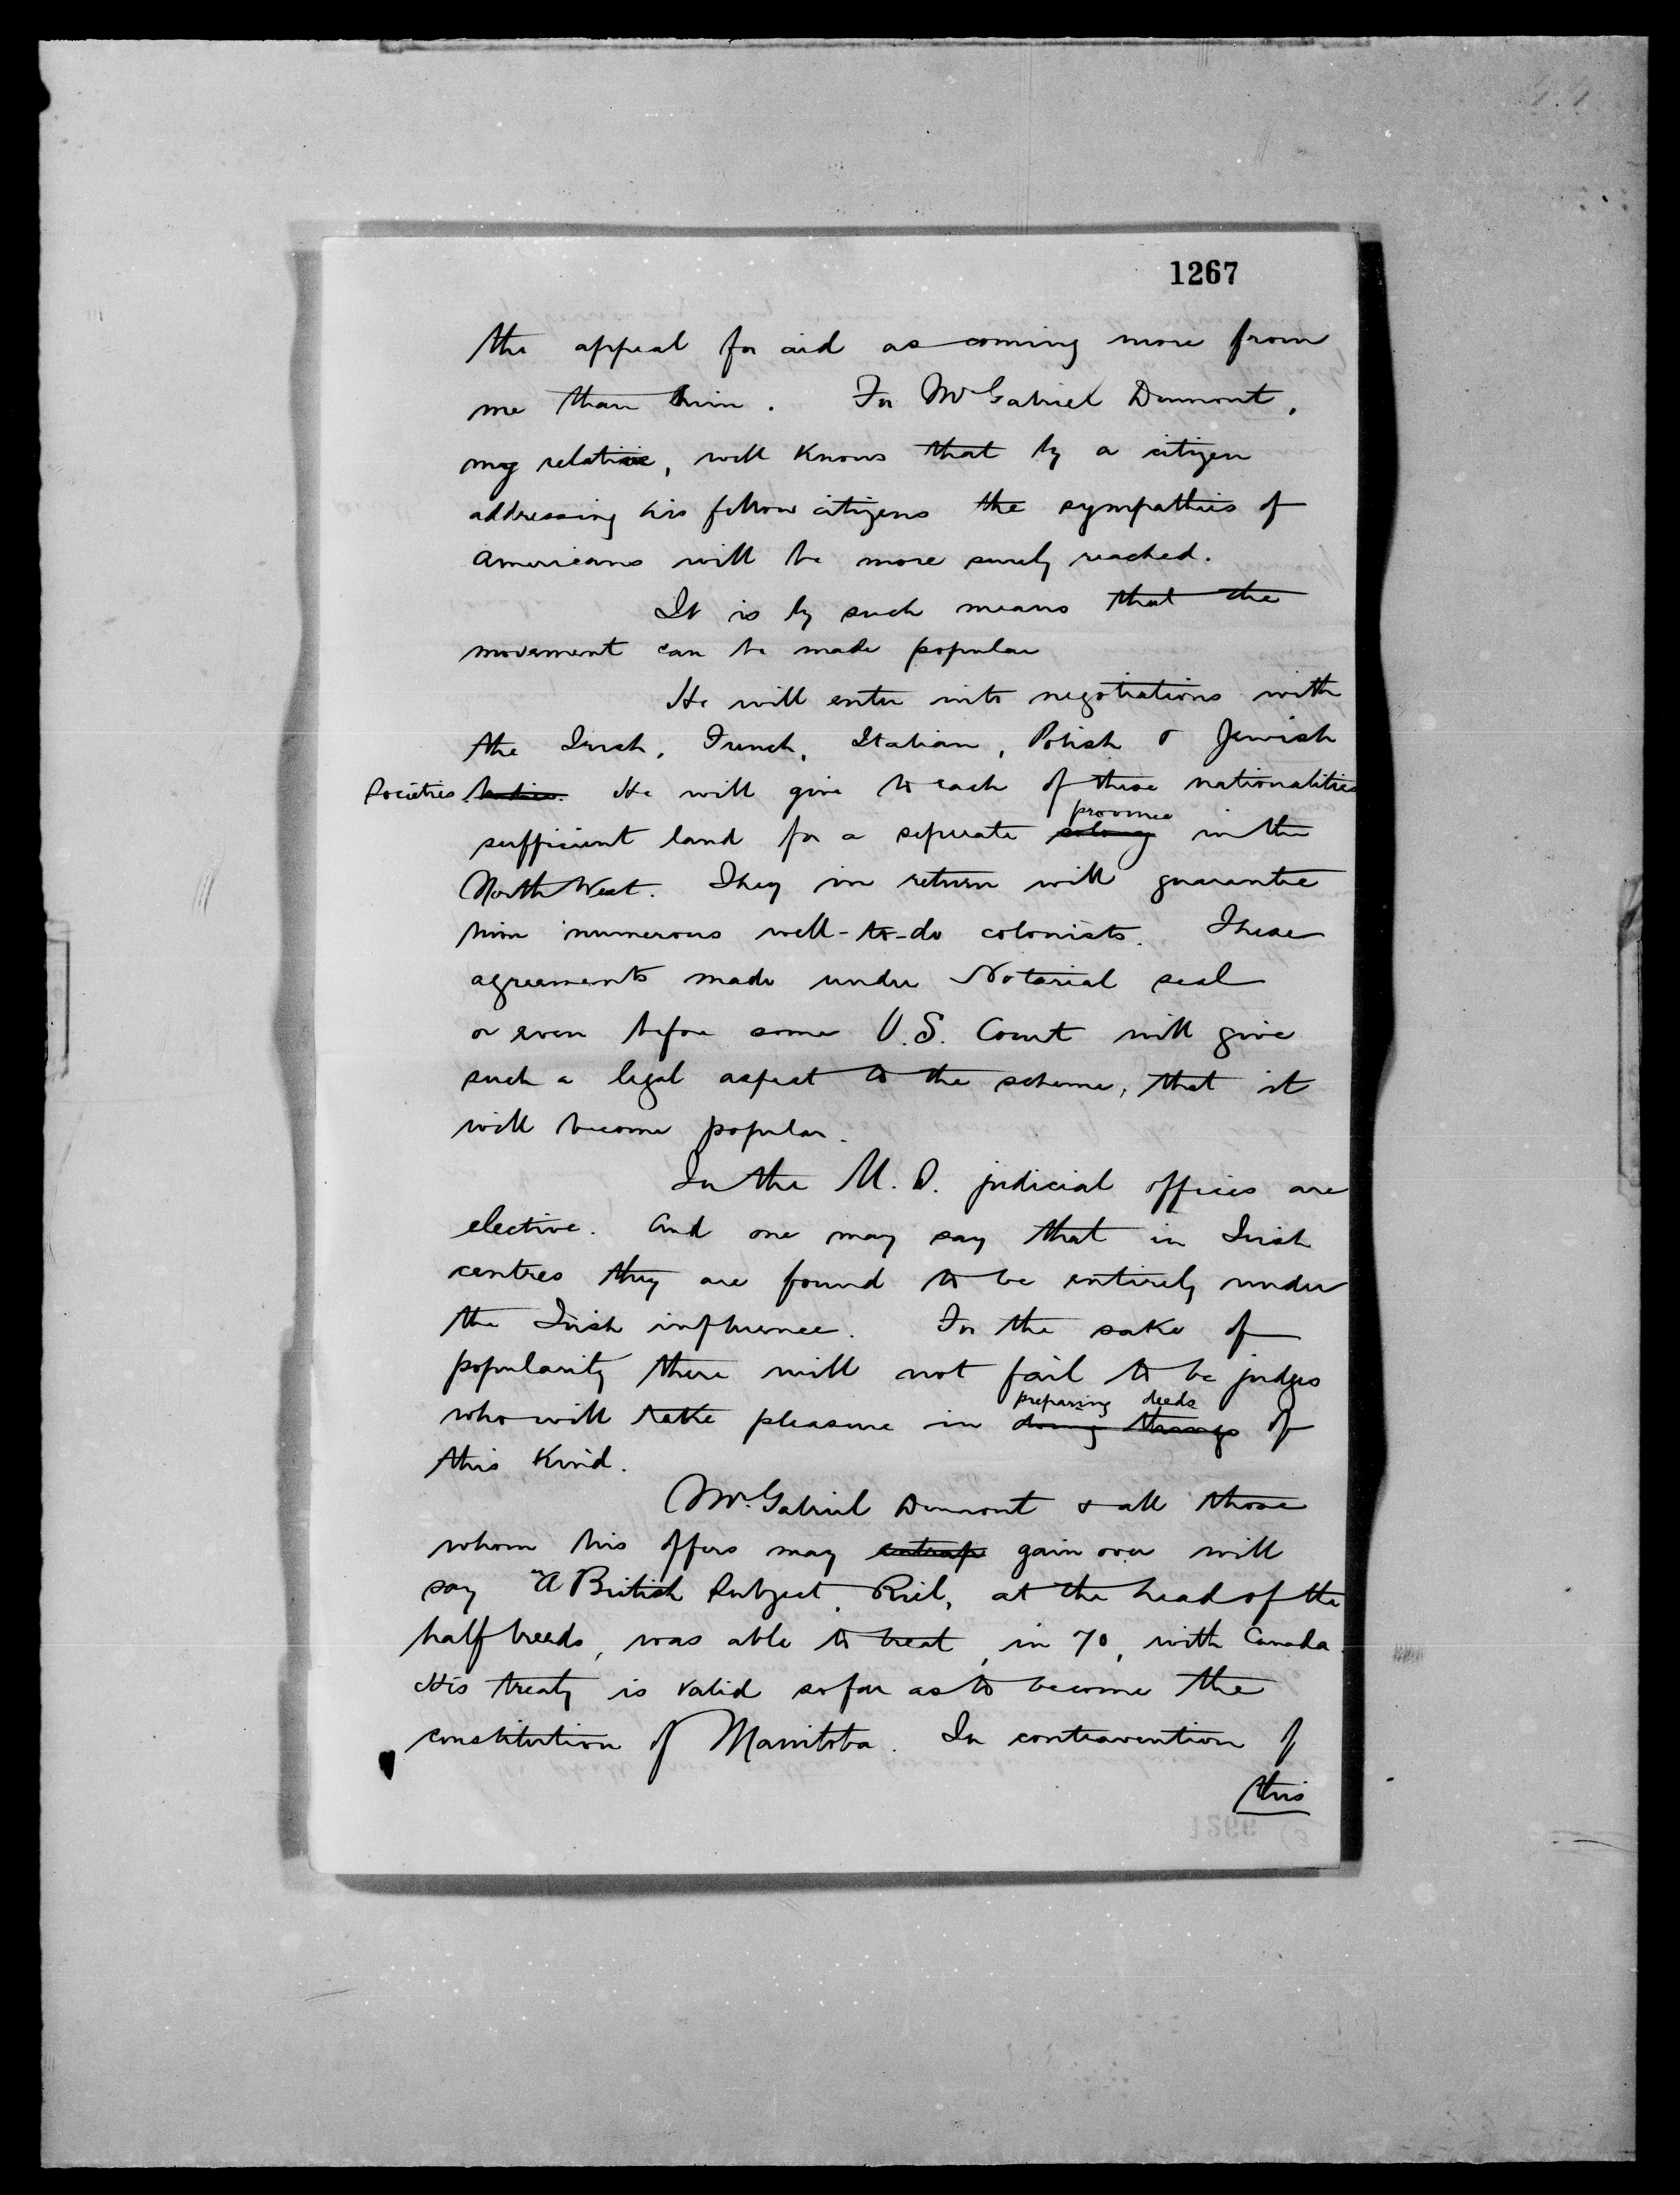 1267
the appeal for aid as coming more from
me than him. For Mr Gabriel Dumont,
my relative, well knows that by a citizen
addressing his fellow citizens the sympathies of
Americans will be more surely reached.
It is by such means that the
movement can be made popular
He will enter into negotiations with
the Irish, French, Italian, Polish & Jewish
Societies bodies. He will give to each of these nationalities
province
sufficient land for a seperate colony in the
North West. They in return will guarantee
him numerous well-to-do colonists. These
agreements made under Notarial seal
or even before some U.S. Court will give
such a legal aspect to the scheme, that it
will become popular.
In the U.S. judicial offices are
elective. And one may say that in Irish
centres they are found to be entirely under
the Irish influence. For the sake of
popularity there will not fail to be judges
preparing deeds
who will take pleasure in doing things of
this kind.
Mr. Gabriel Dumont & all those
whom his offers may entrap gain over will
say "A British Subject, Riel, at the head of the
half breeds, was able to treat, in 70, with Canada.
His treaty is valid so far as to become the
constitution of Manitoba. In contravention of
this